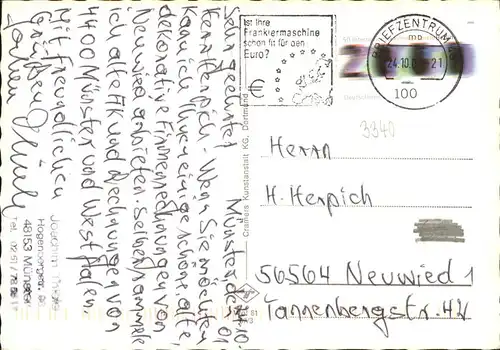 Münster, den 24.10.
01
Sehr geehrter
Herr Herpich - Wenn Sie möchten,
kann ich Ihnen einige schöne, alte,
dekorative Firmenrechnungen von
Neuwied anbieten. Selbst sammle
ich alte Akt. und Rechnungen von
4400 Münster und Westfalen
Mit freundlichen
Grüßen
Joachim
48153 Münster
Ist Ihre
Frankiermaschine
schon fit für den
Euro?
€
BRIEFZENTRUM 48
mb
24.10.0 -21
100
3340
Cramers Kunstanstalt KG, Dortmund
Herrn
H. Herpich
56564 Neuwied 1
Tannenbergstr. 42